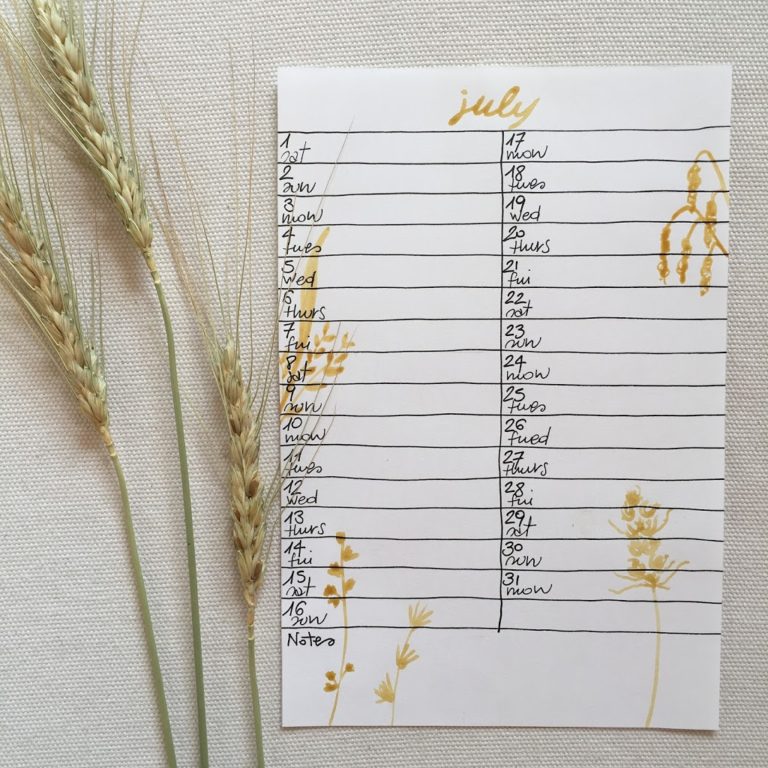 july
1
sat
2
sun
3
mon
4
tues
5
wed
6
thurs
7
fri
8
sat
9
sun
10
mon
11
tues
12
wed
13
thurs
14
fri
15
sat
16
sun
Notes
17
mon
18
tues
19
wed
20
thurs
21
fri
22
sat
23
sun
24
mon
25
tues
26
fued
27
thurs
28
fri
29
sat
30
sun
31
mon